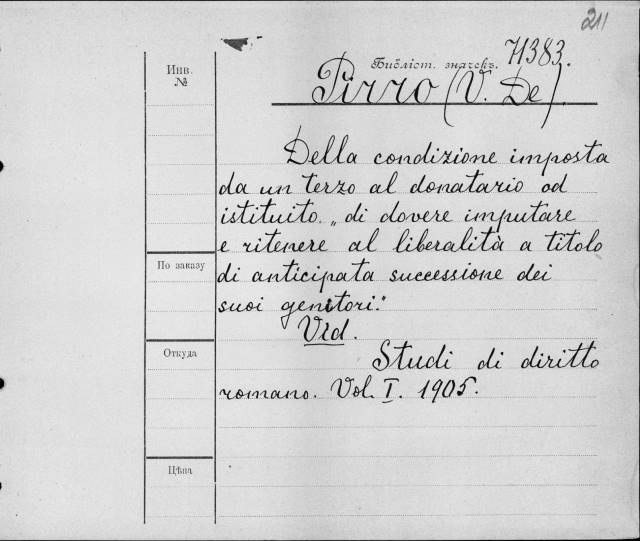 211
Инв.
№
Библіот. значекъ. 71383.
Pirro (V. De).
Della condizione imposta
da un terzo al donatario od
istituito „di dovere imputare
e ritenere al liberalità a titolo
di anticipata successione dei
suoi genitori."
Vid.
Studi di diritto
romano. Vol. I. 1905.
По заказу
Откуда
Цѣна